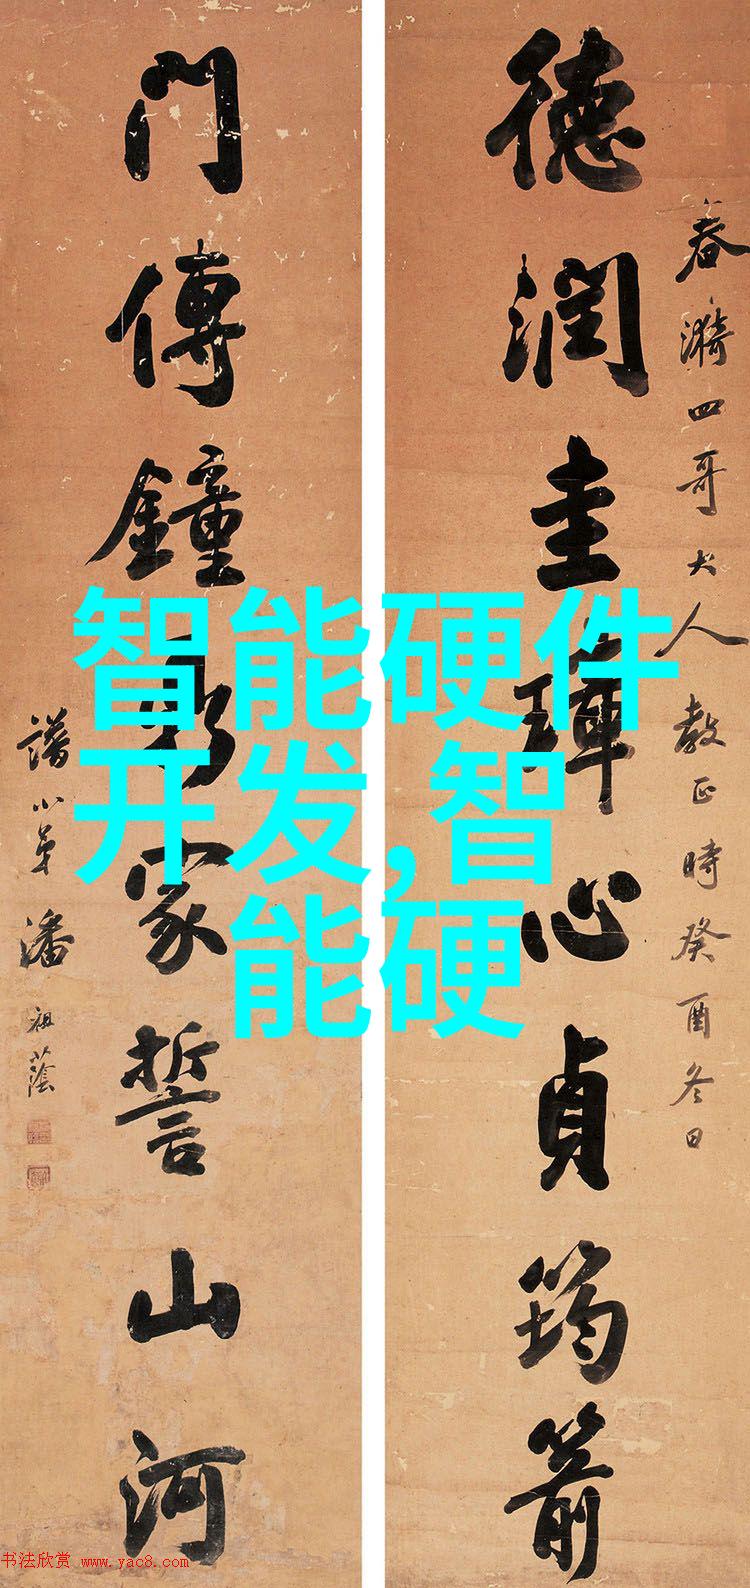 春漪四哥大人教正時癸酉冬日
德潤圭璋心貞筠箭
門傳鐘鼎家誓山河
譜小弟潘祖蔭
智能硬件
开发,智
能硬
书法欣赏 www.yac8.com